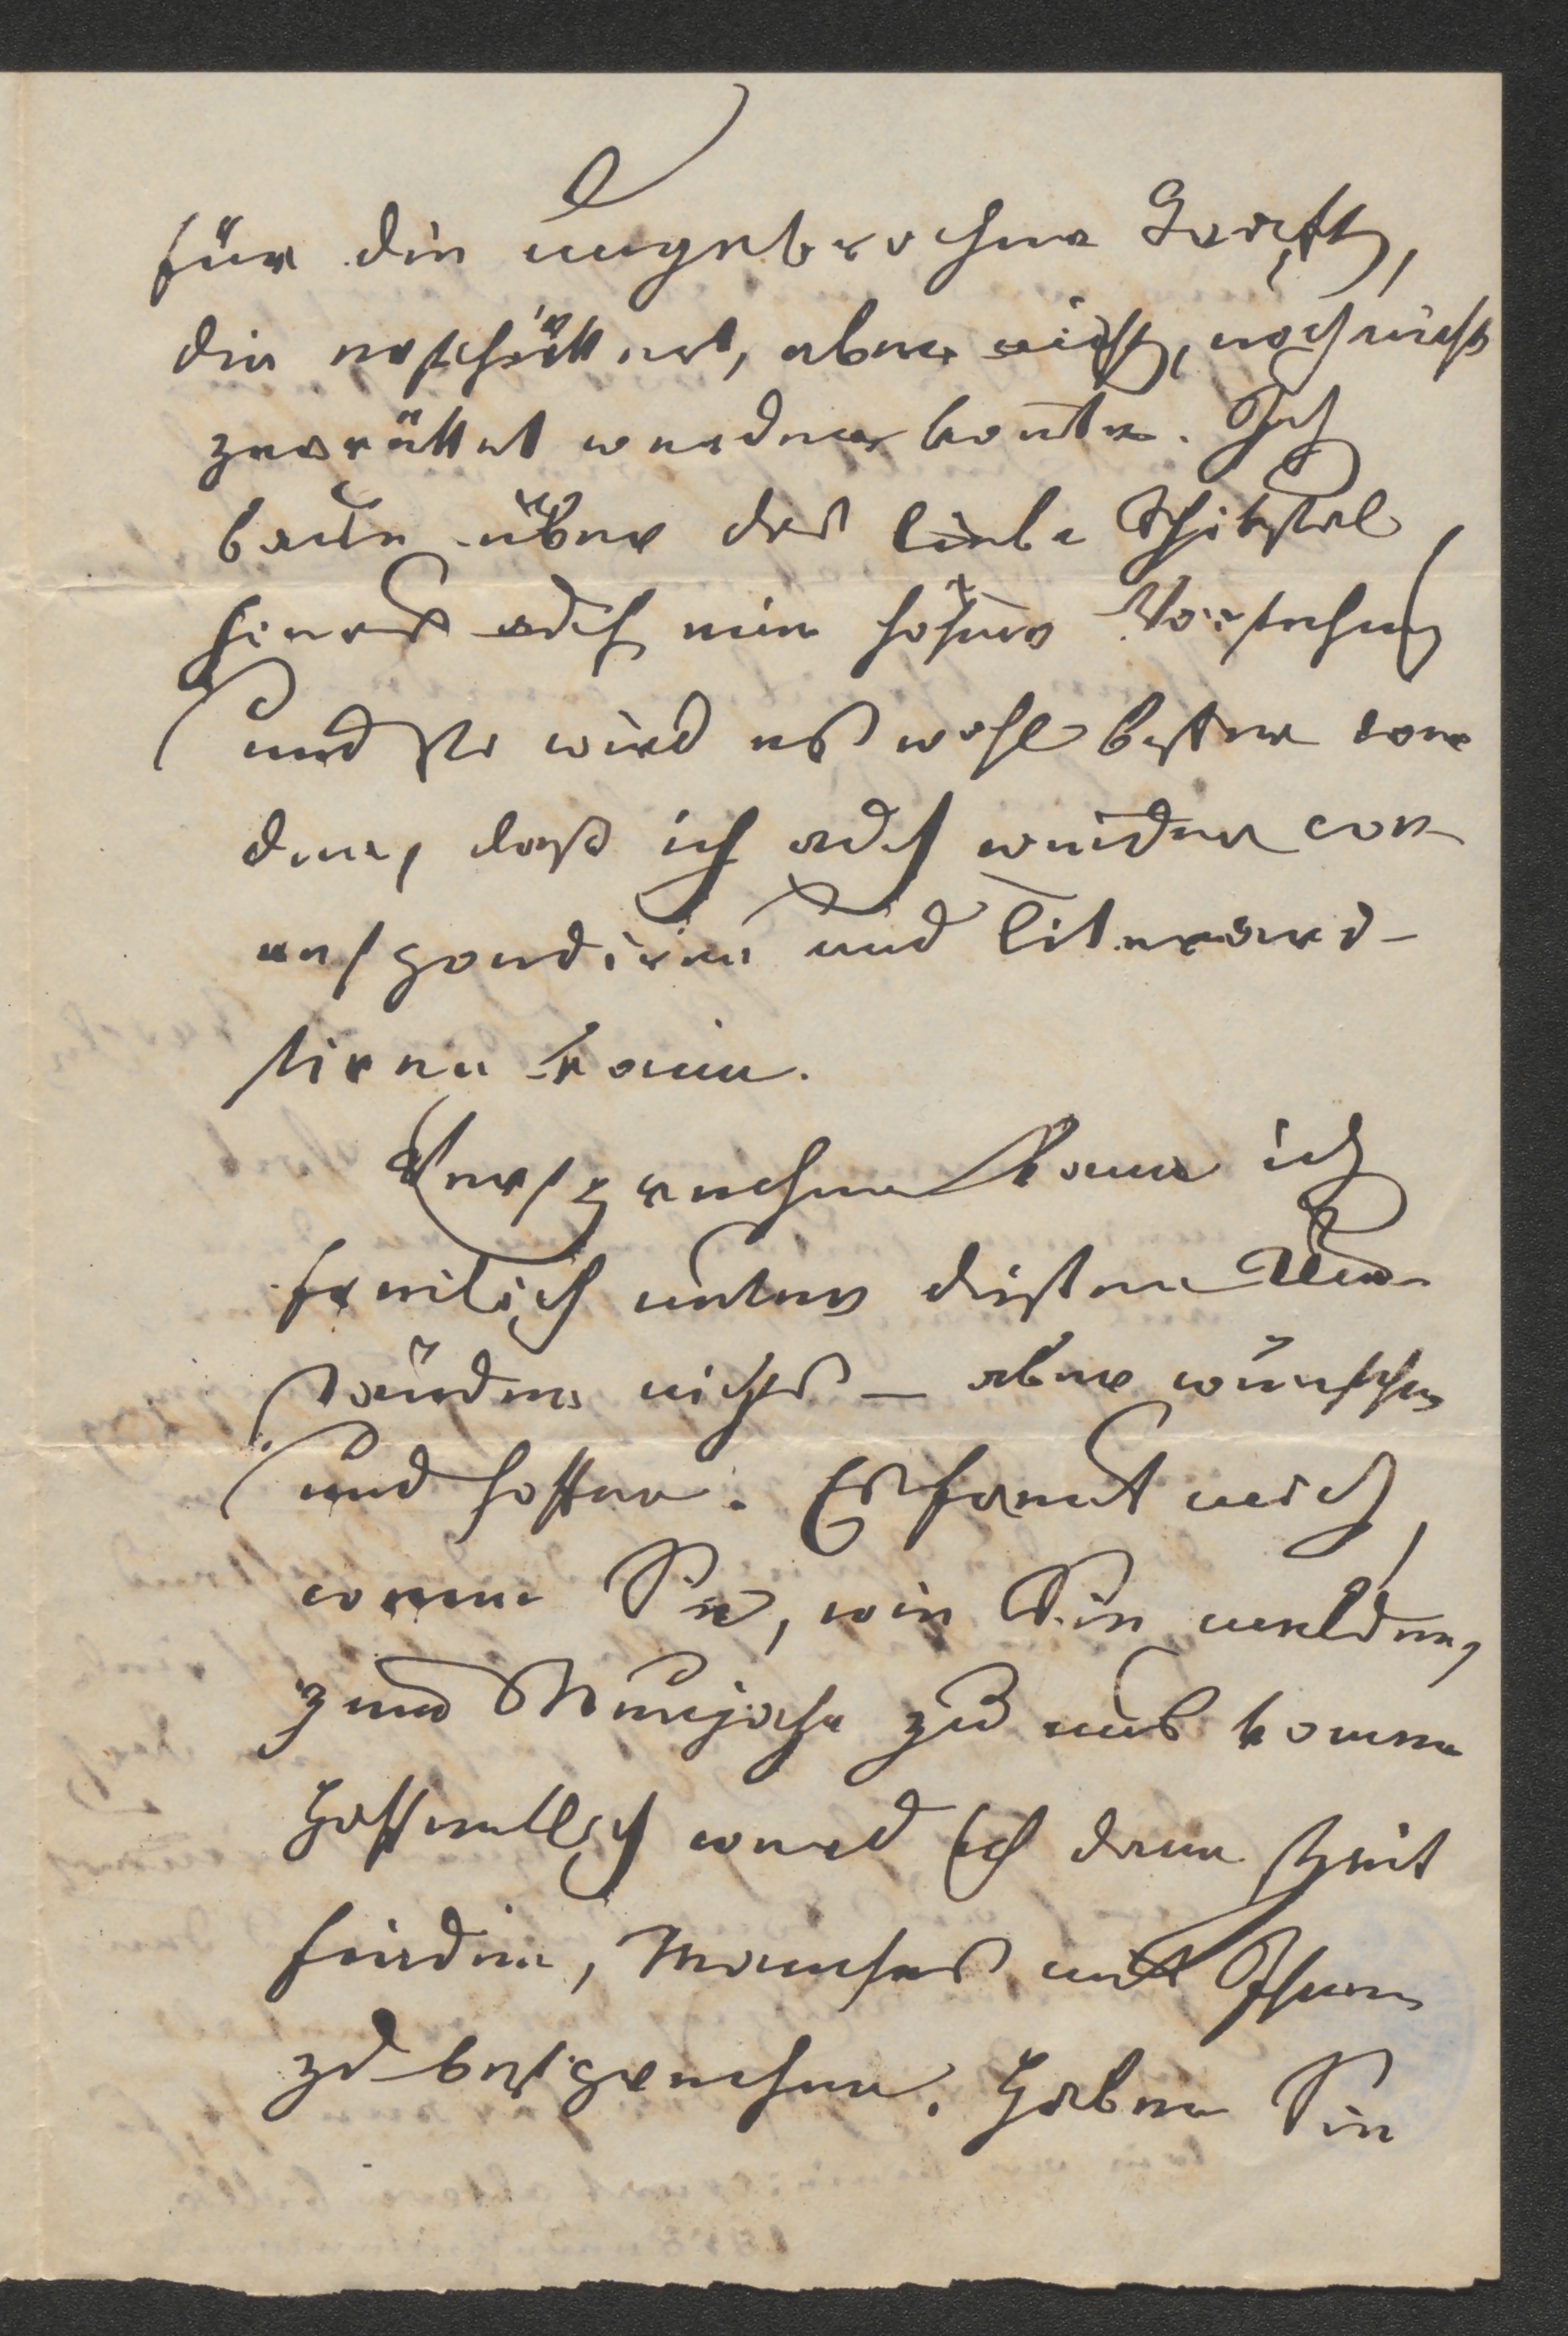 für die ungebrochne Kraft,
die erschüttert, aber nicht, noch nicht
zerrüttet werden konnte. Ich
baue über das liebe Schiksal
hinaus auch eine höhere Vorsehung
und so wird es wohl besser wer
den, daß ich auch wieder cor
respondiren und literari-
siren kann.
Versprechen kann ich
freilich unter diesen Um
ständen nichts – aber wünschen
und hoffen. Es freut mich,
wenn Sie, wie Sie melden,
zum Neujahr zu uns komen
Hoffentlich werd ich dann Zeit
finden, Manches mit Ihnen
zu besprechen. Haben Sie